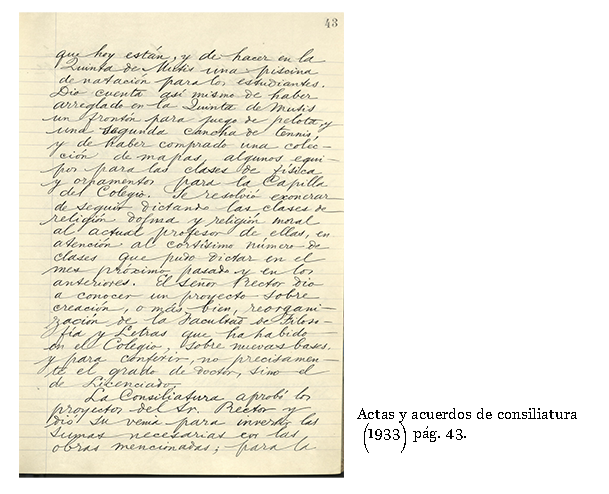 43
que hoy están, y de hacer en la
Quinta de Mutis una piscina
de natación para los estudiantes.
Dio cuenta así mismo de haber
arreglado en la Quinta de Mutis
un frontón para juego de pelota, y
una segunda cancha de tennis,
y de haber comprado una colec-
ción de mapas, algunos equi-
pos para las clases de física
y ornamentos para la Capilla
del Colegio. Se resolvió exonerar
de seguir dictando las clases de
religión dogma y religión moral
al actual profesor de ellas, en
atención al cortísimo número de
clases que pudo dictar en el
mes próximo pasado y en los
anteriores. El señor Rector dio
a conocer un proyecto sobre
creación, o más bien, reorgani-
zación de la Facultad de Filoso-
fía y Letras que ha habido
en el Colegio, sobre nuevas bases,
y para conferir, no precisamen-
te el grado de doctor, sino el
de Licenciado.
La Consiliatura aprobó los
proyectos del Sr. Rector y
dio su venia para invertir las
sumas necesarias con las
obras mencionadas; para la
Actas y acuerdos de consiliatura
(1933) pág. 43.